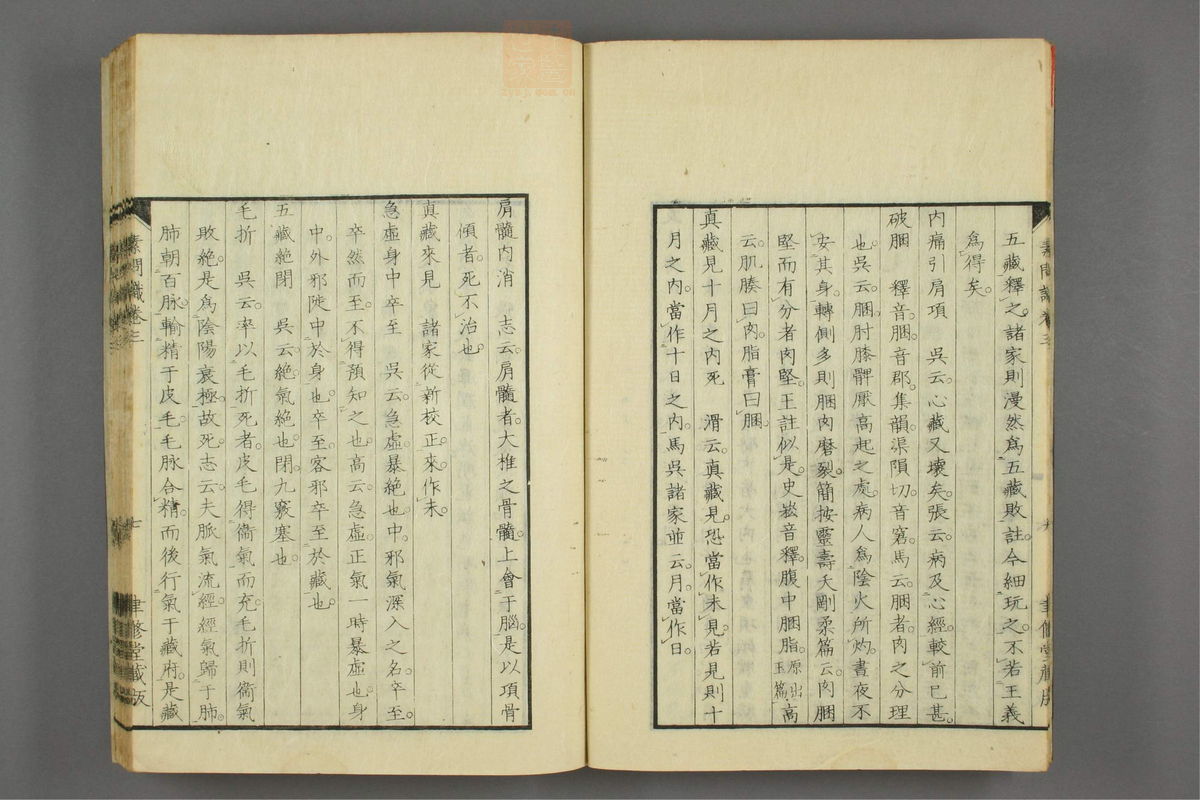 五藏釋之。諸家則漫然爲五藏敗註。今細玩之。不若王義
爲得矣。
內痛引肩項　吳云。心藏又壞矣。張云。病及心經。較前已甚。
破䐃　釋音。䐃。音郡。集韻。渠隕切。音窘。馬云。䐃者。肉之分理
也。吳云。䐃。肘膝髀厭高起之處。病人爲陰火所灼。晝夜不
安其身。轉側多則䐃肉磨裂。簡按靈壽夭剛柔篇云。肉䐃
堅而有分者肉堅。王註似是。史崧音釋。腹中䐃脂。原出玉篇。高
云。肌腠曰肉。脂膏曰䐃。
真藏見十月之內死　滑云。真藏見。恐當作未見。若見則十
月之內。當作十日之內。馬吳諸家並云。月。當作日。
肩髓內消　志云。肩髓者。大椎之骨髓。上會于腦。是以項骨
傾者。死不治也。
真藏來見　諸家從新校正。來。作未。
急虛身中卒至　吳云。急虛。暴絕也。中。邪氣深入之名。卒至。
卒然而至。不得預知之也。高云。急虛。正氣一時暴虛也。身
中。外邪陡中於身也。卒至。客邪卒至於藏也。
五藏絕閉　吳云。絕。氣絕也。閉。九竅塞也。
毛折　吳云。率以毛折死者。皮毛得衞氣而充。毛折則衞氣
敗絕。是爲陰陽衰極。故死。志云。夫脈氣流經。經氣歸于肺。
肺朝百脉。輸精于皮毛。毛脉合精。而後行氣于藏府。是藏
素問識卷三
七
聿修堂藏版